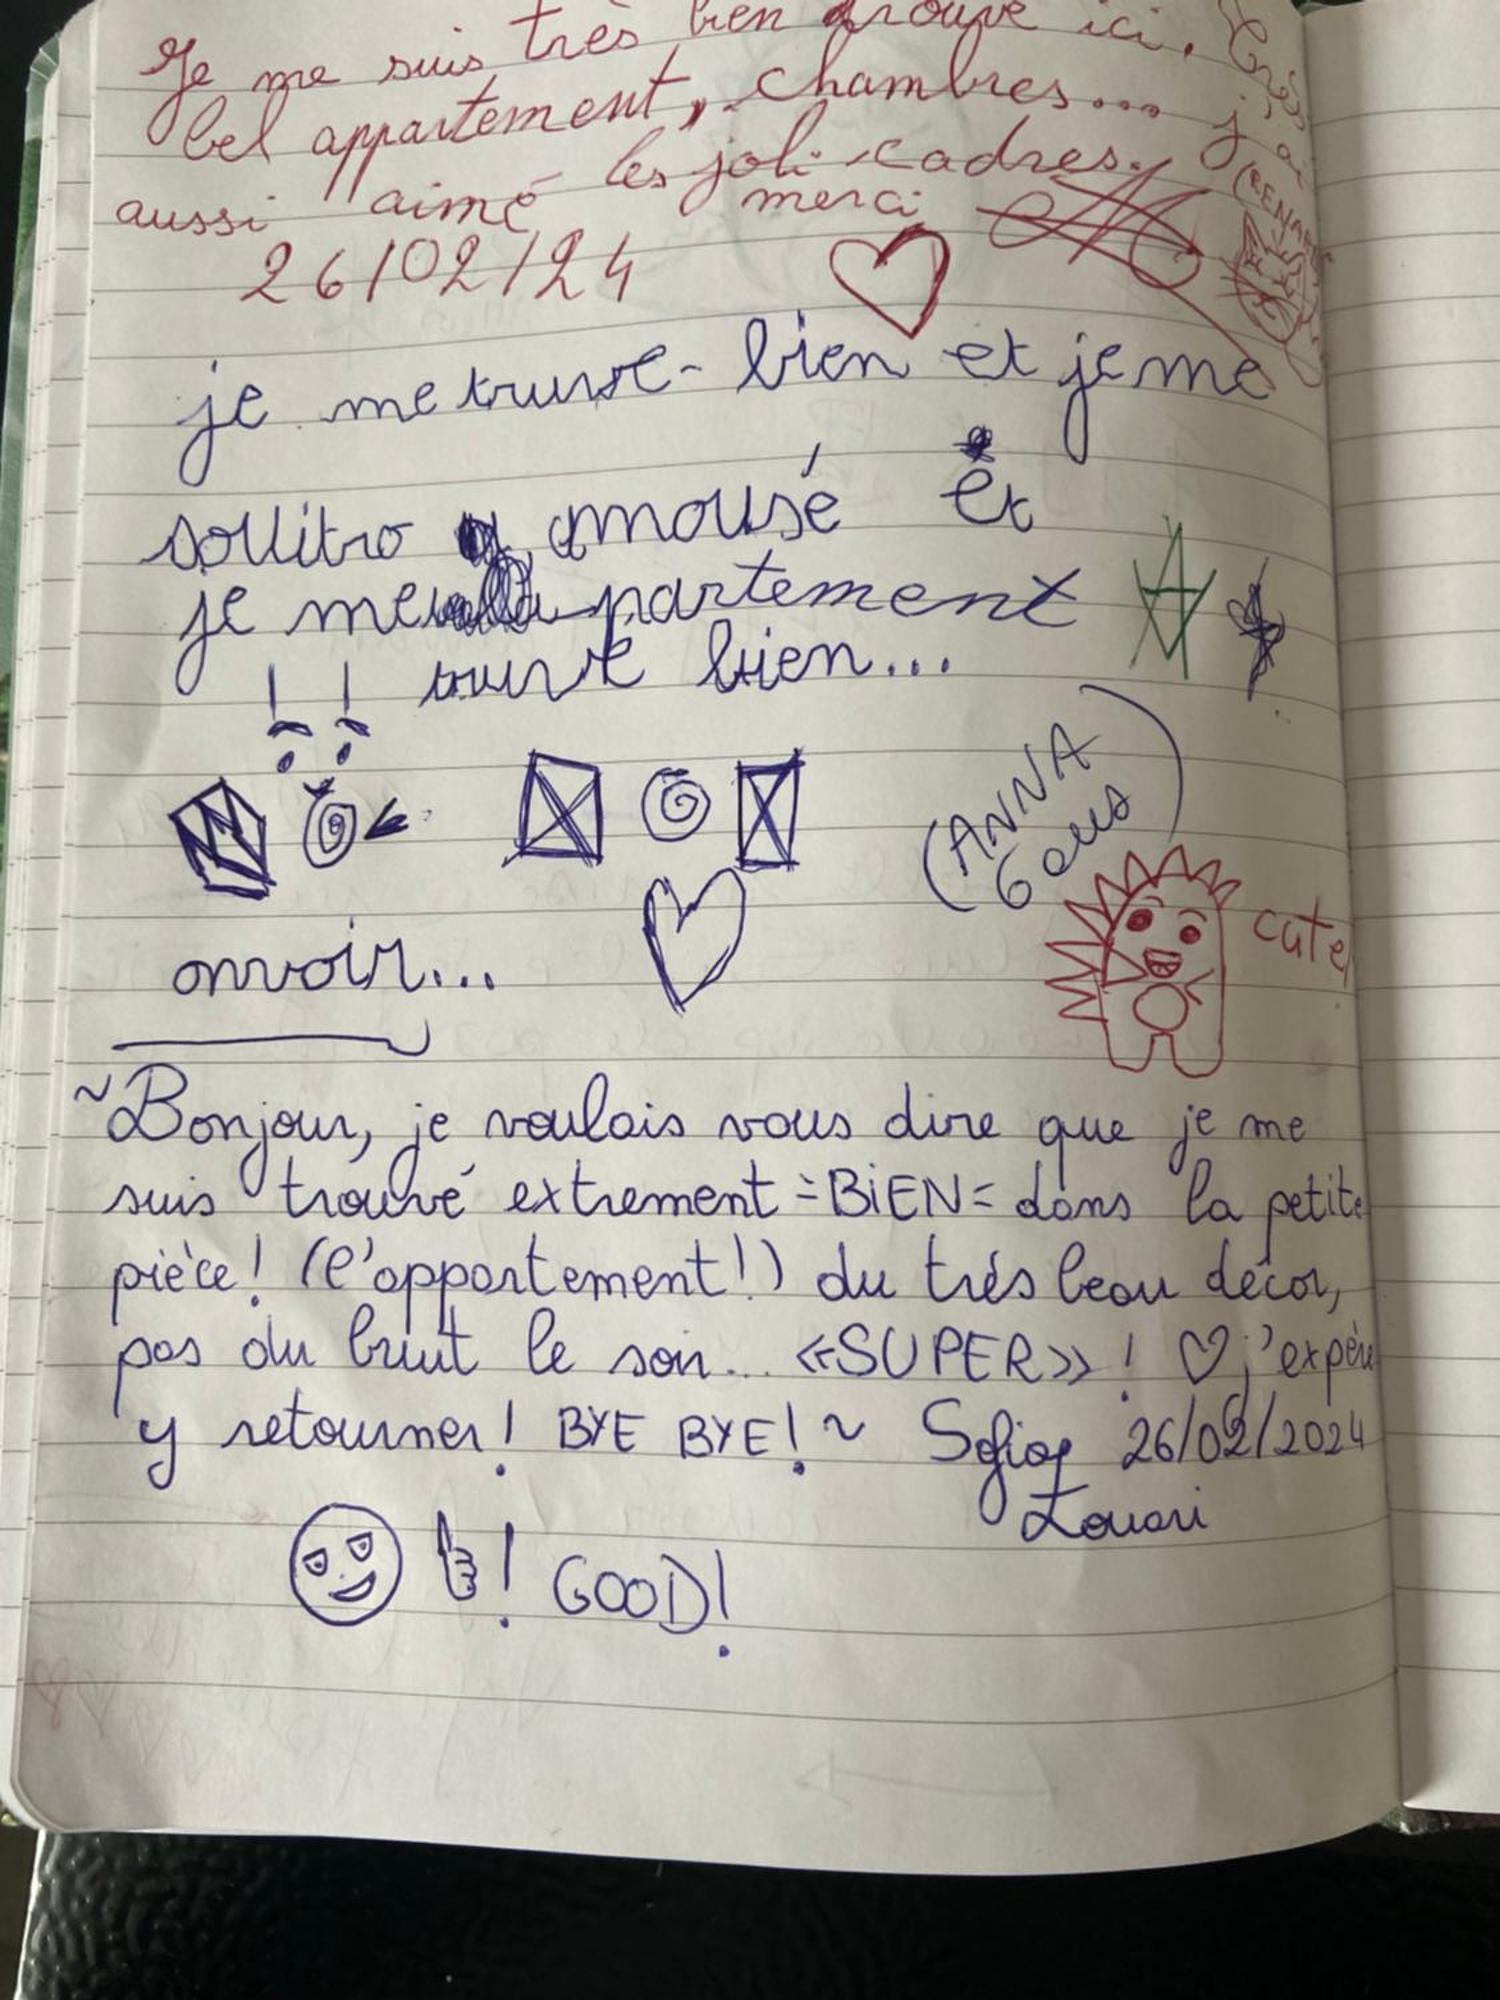 Je me suis très bien trouvé ici. Très
bel appartement, chambres... j'ai
aussi aimé les joli cadres.
merci
26/02/24
(RENARD
je me truve- bien et je me
amousé et
je me partement
truve bien...
(ANNA
6 ans)
cute
onvoir...
~Bonjour, je voulais vous dire que je me
suis trouvé extrement =BiEN= dans la petite
pièce! (l'appartement!) du très beau décor,
pas du bruit le son... «SUPER»! ♡ j'expère
y retourner! BYE BYE! ~ Sofia 26/02/2024
Louari
! GOOD!